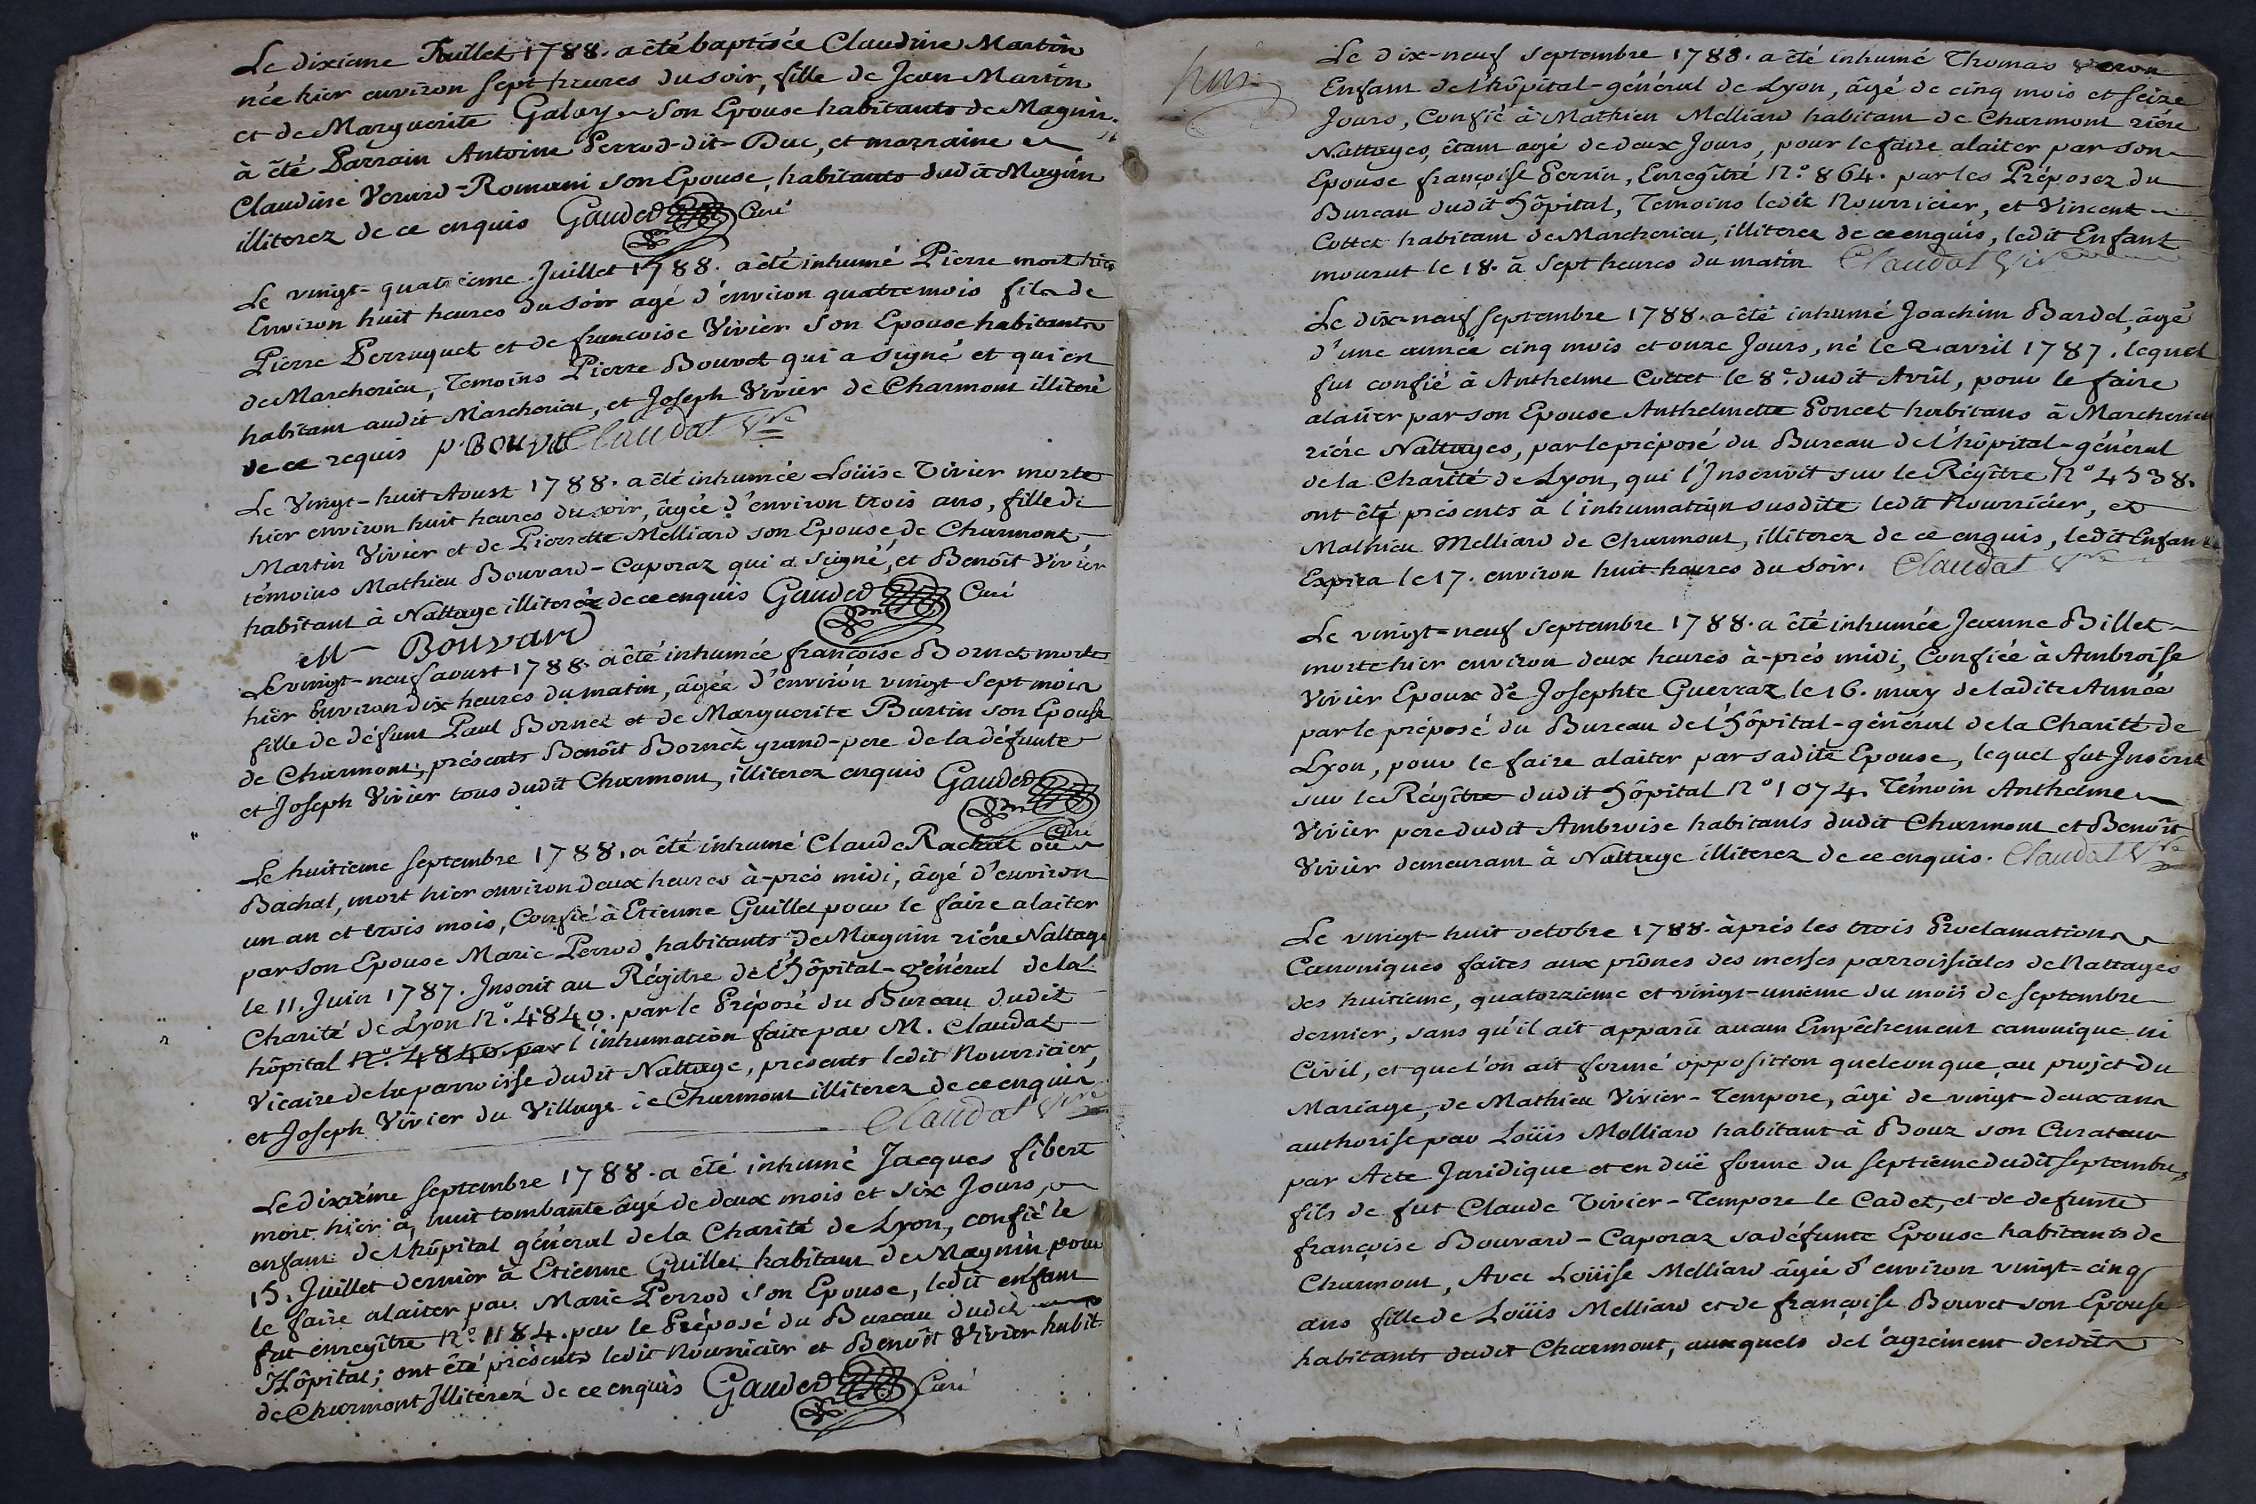 Le dixieme Juillet 1788. a été baptisée Claudine Martin
née hier environ sept heures du soir, fille de Jean Martin
et de Marguerite Galay son Epouse habitants de Magnin.
à été Parrain Antoine Perrod-dit-Duc, et marraine
Claudine Verard-Romani son Epouse, habitants dudit Magnin
illiterez de ce enquis Gauded Curé
Le vingt-quatrieme Juillet 1788. a été inhumé Pierre mort hier
Environ huit heures du soir agé d'environ quatre mois fils de
Pierre Perruquet et de francoise Vivier son Epouse habitants
de Marcherieu, Temoins Pierre Bouvet qui a signé et qui en
habitant audit Marcherieu, et Joseph Vivier de Charmont illiteré
de ce requis p. Bouvet Claudat Vre
Le Vingt-huit Aoust 1788. a été inhumée Loüise Vivier morte
hier environ huit heures du soir, âgée d'environ trois ans, fille de
Martin Vivier et de Pierrette Melliard son Epouse de Charmont
témoins Mathieu Bouvard-Caporaz qui a signé, et Benoît Vivier
habitant à Nattage illiterez de ce enquis Gauded Curé
M Bouvard
Le vingt-neuf aoust 1788. a été inhumée françoise Bornet morte
hier Environ dix heures du matin, âgée d'environ vingt sept mois
fille de défunt Paul Bornet et de Marguerite Burtin son Epouse
de Charmont, présents Benoît Bornet grand-pere de la défunte
et Joseph Vivier tous dudit Charmont, illiterez enquis Gauded
Curé
Le huitieme septembre 1788. a été inhumé Claude Rachat ou
Bachat, mort hier environ deux heures à-prés midi, âgé d'environ
un an et trois mois, Confié à Etienne Guillet pour le faire alaiter
par son Epouse Marie Perrod habitants de Magnin riére Nattage
le 11. Juin 1787. Inscrit au Régître de l'Hôpital-général de la
Charité de Lyon N°. 4840. par le Préposé du Bureau dudit
hôpital N°. 4840. par l'inhumation faite par M. Claudat
Vicaire de la parroisse dudit Nattage, présents ledit Nourricier,
et Joseph Vivier du Village de Charmont illiterez de ce enquis
Claudat Vre
Le dixiéme septembre 1788. a été inhumé Jacques fibert
mort hier à, huit tombante âgé de deux mois et six Jours,
enfant de l'hôpital général de la Charité de Lyon, confié le
15. Juillet dernier à Etienne Guillet habitant de Magnin pour
le faire alaiter par Marie Perrod son Epouse, ledit enfant
fut enregître N°. 1184. par le Préposé du Bureau dudit
Hôpital; ont été présents ledit Nourricier et Benoît Vivier habit.
de Charmont Illiterez de ce enquis Gauded Curé
Le dix-neuf septembre 1788. a été inhumé Thomas
Enfant de l'hôpital-général de Lyon, âgé de cinq mois et seize
Jours, Confié à Mathieu Melliard habitant de Charmont riére
Nattages, étant agé de deux Jours, pour le faire alaiter par son
Epouse françoise Perrin, Enregîtré N°. 864. par les Préposez du
Bureau dudit Hôpital, Temoins ledit Nourricier, et Vincent
Cottet habitant de Marcherieu, illiterez de ce enquis, ledit Enfant
mourut le 18. à Sept heures du matin Claudat Vre
Le dix-neuf septembre 1788. a été inhumé Joachim Bardel, âgé
d'une année cinq mois et onze Jours, né le 2 avril 1787. lequel
fut confié à Anthelme Cottet le 8e. dudit Avril, pour le faire
alaiter par son Epouse Anthelmette Poncet habitans à Marcherieu
riére Nattages, par le préposé du Bureau de l'hôpital-général
de la Charité de Lyon, qui l'Inscrivit sur le Régître N° 4538.
ont été présents à l'inhumation susdite ledit Nourricier, et
Mathieu Melliard de Charmont, illiterez de ce enquis, ledit Enfant
Expira le 17. environ huit heures du soir. Claudat Vre
Le vingt-neuf septembre 1788. a été inhumée Jeanne Billet
morte hier environ deux heures à-prés midi, Confiée à Ambroise
Vivier Epoux de Josephte Guerraz le 16. may de ladite Année
par le préposé du Bureau de l'Hôpital-général de la Charité de
Lyon, pour le faire alaiter par sadite Epouse, lequel fut Inscrit
sur le Régître dudit Hôpital N° 1074. Témoin Anthelme
Vivier pere dudit Ambroise habitants dudit Charmont et Benoît
Vivier demeurant à Nattage illiterez de ce enquis. Claudat Vre
Le vingt-huit octobre 1788. àprés les trois Proclamations
Canoniques faites aux prônes des messes parroissiales de Nattages
des huitieme, quatorzieme et vingt-unieme du mois de septembre
dernier, sans qu'il ait apparû aucun Empêchement canonique ni
Civil, et que l'on ait formé opposition quelconque, au projet du
Mariage, de Mathieu Vivier-Tempore, âgé de vingt-deux ans
authorise par Loüis Molliard habitant à Bouz son Curateur
par Acte Juridique et en duë forme du septieme dudit septembre,
fils de fut Claude Vivier-Tempore le Cadet, et de defunte
françoise Bouvard-Caporaz sa défunte Epouse habitants de
Charmont, Avec Loüise Melliard âgée d'environ vingt-cinq
ans fille de Loüis Melliard et de françoise Bouvet son Epouse
habitants dudit Charmont, auxquels de l'agrément desdits